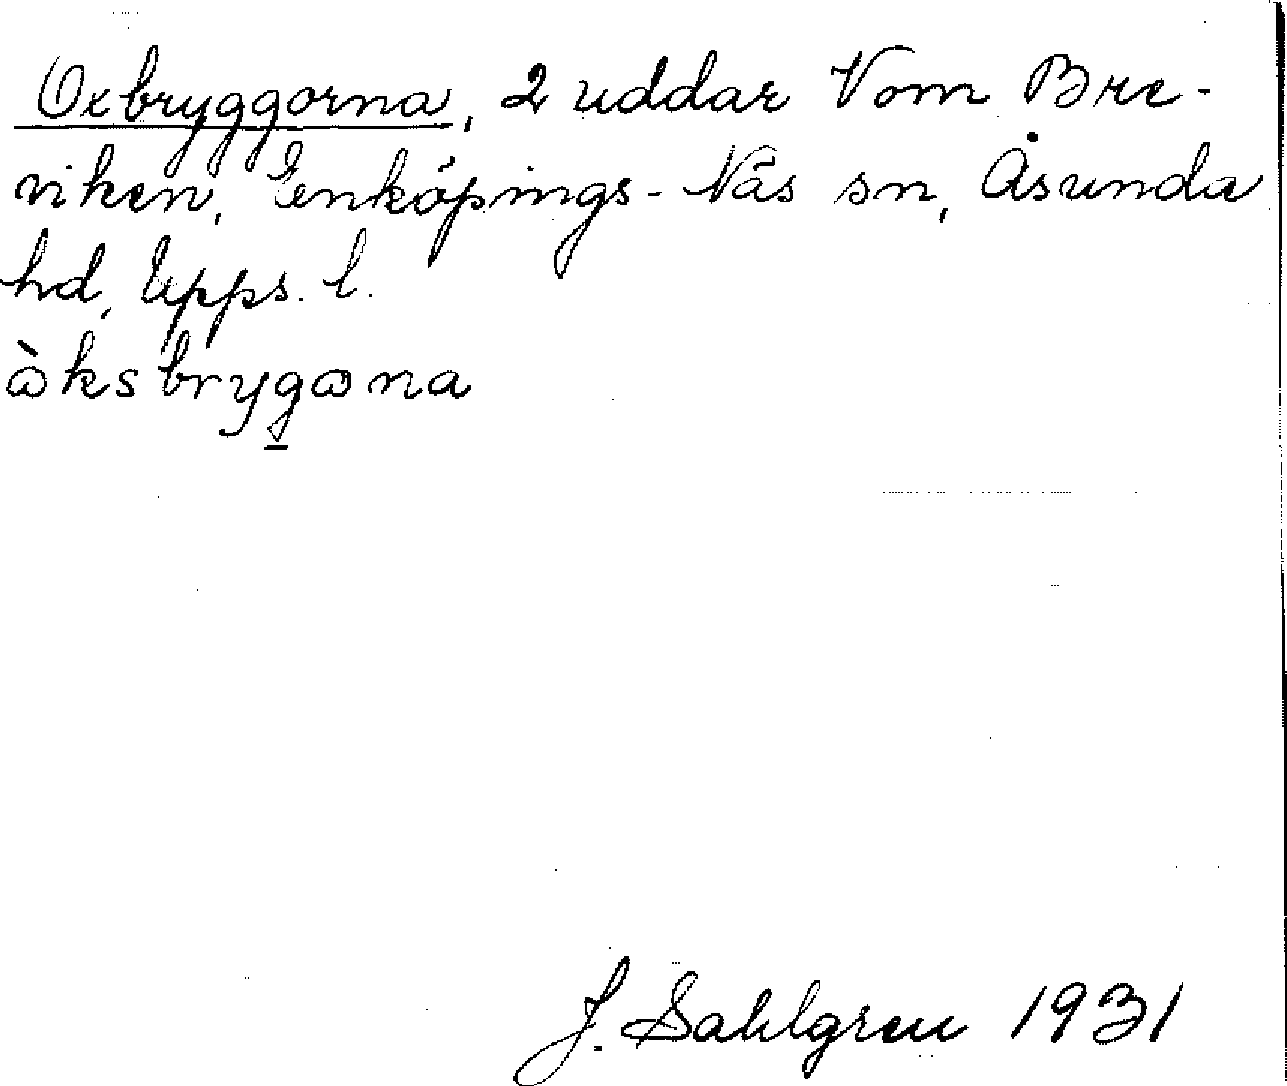 Oxbryggorna, 2 uddar V om Bre-
viken, Enköpings-Näs sn, Åsunda
hd, Upps. l.
ὼksbrygωna
J. Sahlgren 1931